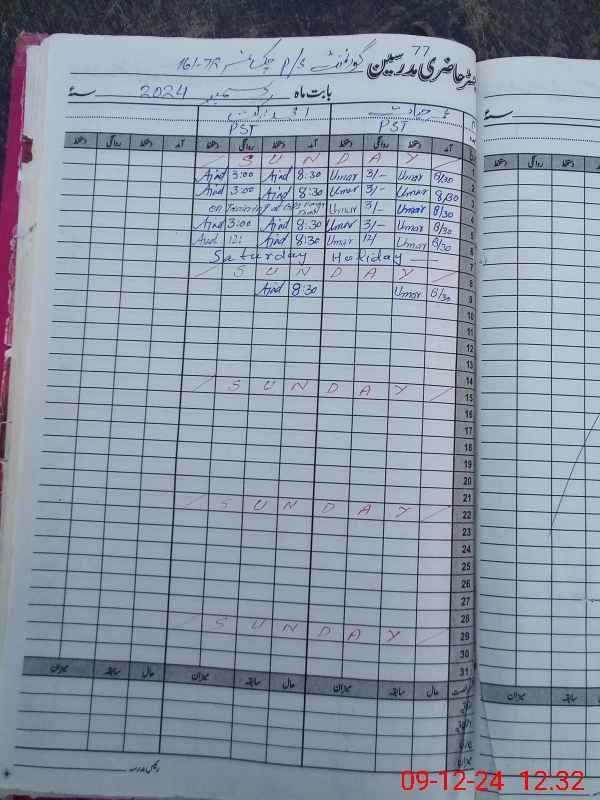 77
رجسٹر حاضری مدرسین گورنمنٹ P/S چک نمبر 161-7R
بابت ماہ دسمبر 2024 سنہ
PST PST
آمد دستخط روانگی دستخط آمد دستخط روانگی دستخط آمد دستخط روانگی دستخط
1 / S U N D A Y /
2 Amjad 3:00 Amjad 8:30 Umar 3/- Umar 8/30
3 Amjad 3:00 Amjad 8:30 Umar 3/- Umar 8/30
4 on Training at Umar 3/- Umar 8/30
5 Amjad 3:00 Amjad 8:30 Umar 3/- Umar 8/30
6 12: Amjad 8:30 Umar 12/ Umar 8/30
7 Saturday Holiday
8 / S U N D A Y /
9 Amjad 8:30 Umar 8/30
10
11
12
13
14
15 / S U N D A Y /
16
17
18
19
20
21
22 / S U N D A Y /
23
24
25
26
27
28
29 / S U N D A Y /
30
31
حال سابقہ میزان حال سابقہ میزان حال سابقہ میزان
اتفاقیہ
میزان
رئیس مدرسہ
09-12-24 12:32